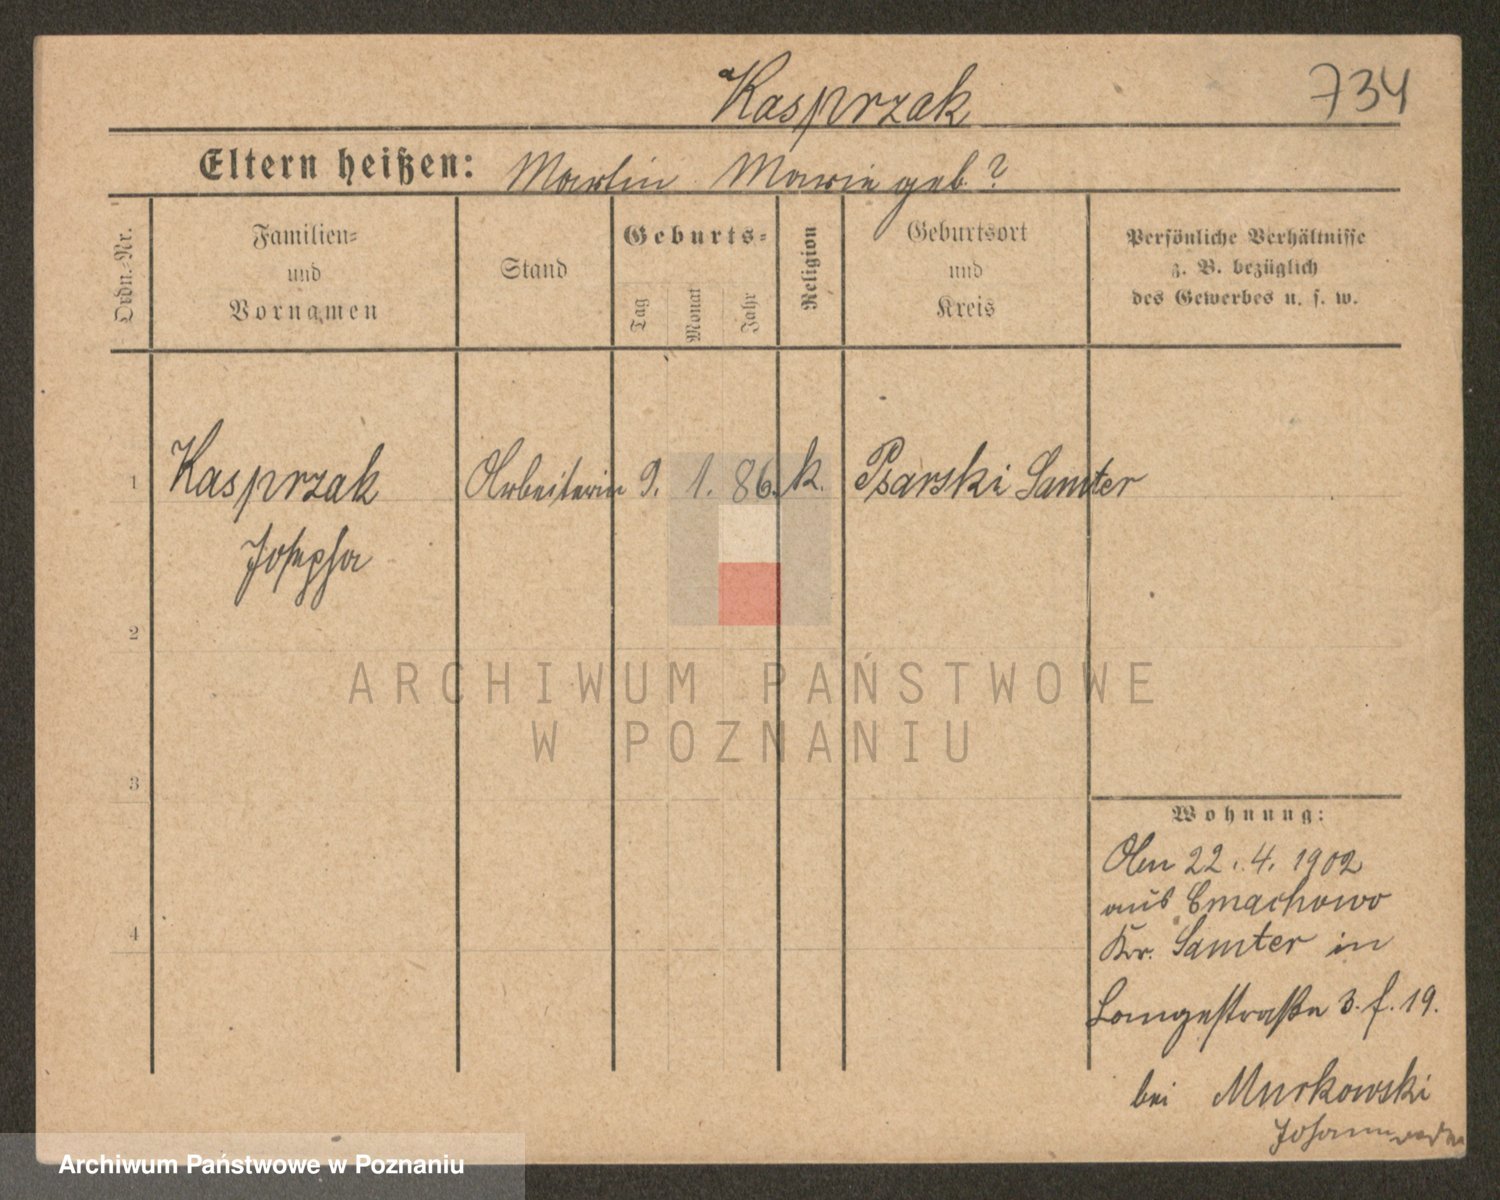 Kasprzak 734
Eltern heißen: Martin Marie geb. ?
Ordn.-Nr.
Familien-
und
Vornamen
Stand
Geburts-
Tag
Monat
Jahr
Religion
Geburtsort
und
Kreis
Persönliche Verhältnisse
z. B. bezüglich
des Gewerbes u. s. w.
1 Kasprzak Arbeiterin 9. 1. 86. k. Psarski Samter
Josepha
2
ARCHIWUM PAŃSTWOWE
W POZNANIU
3
Wohnung:
Am 22. 4. 1902
aus Cmachowo
4
Kr. Samter in
Langestraße 3. f. 19.
bei Murkowski
Johann
Archiwum Państwowe w Poznaniu